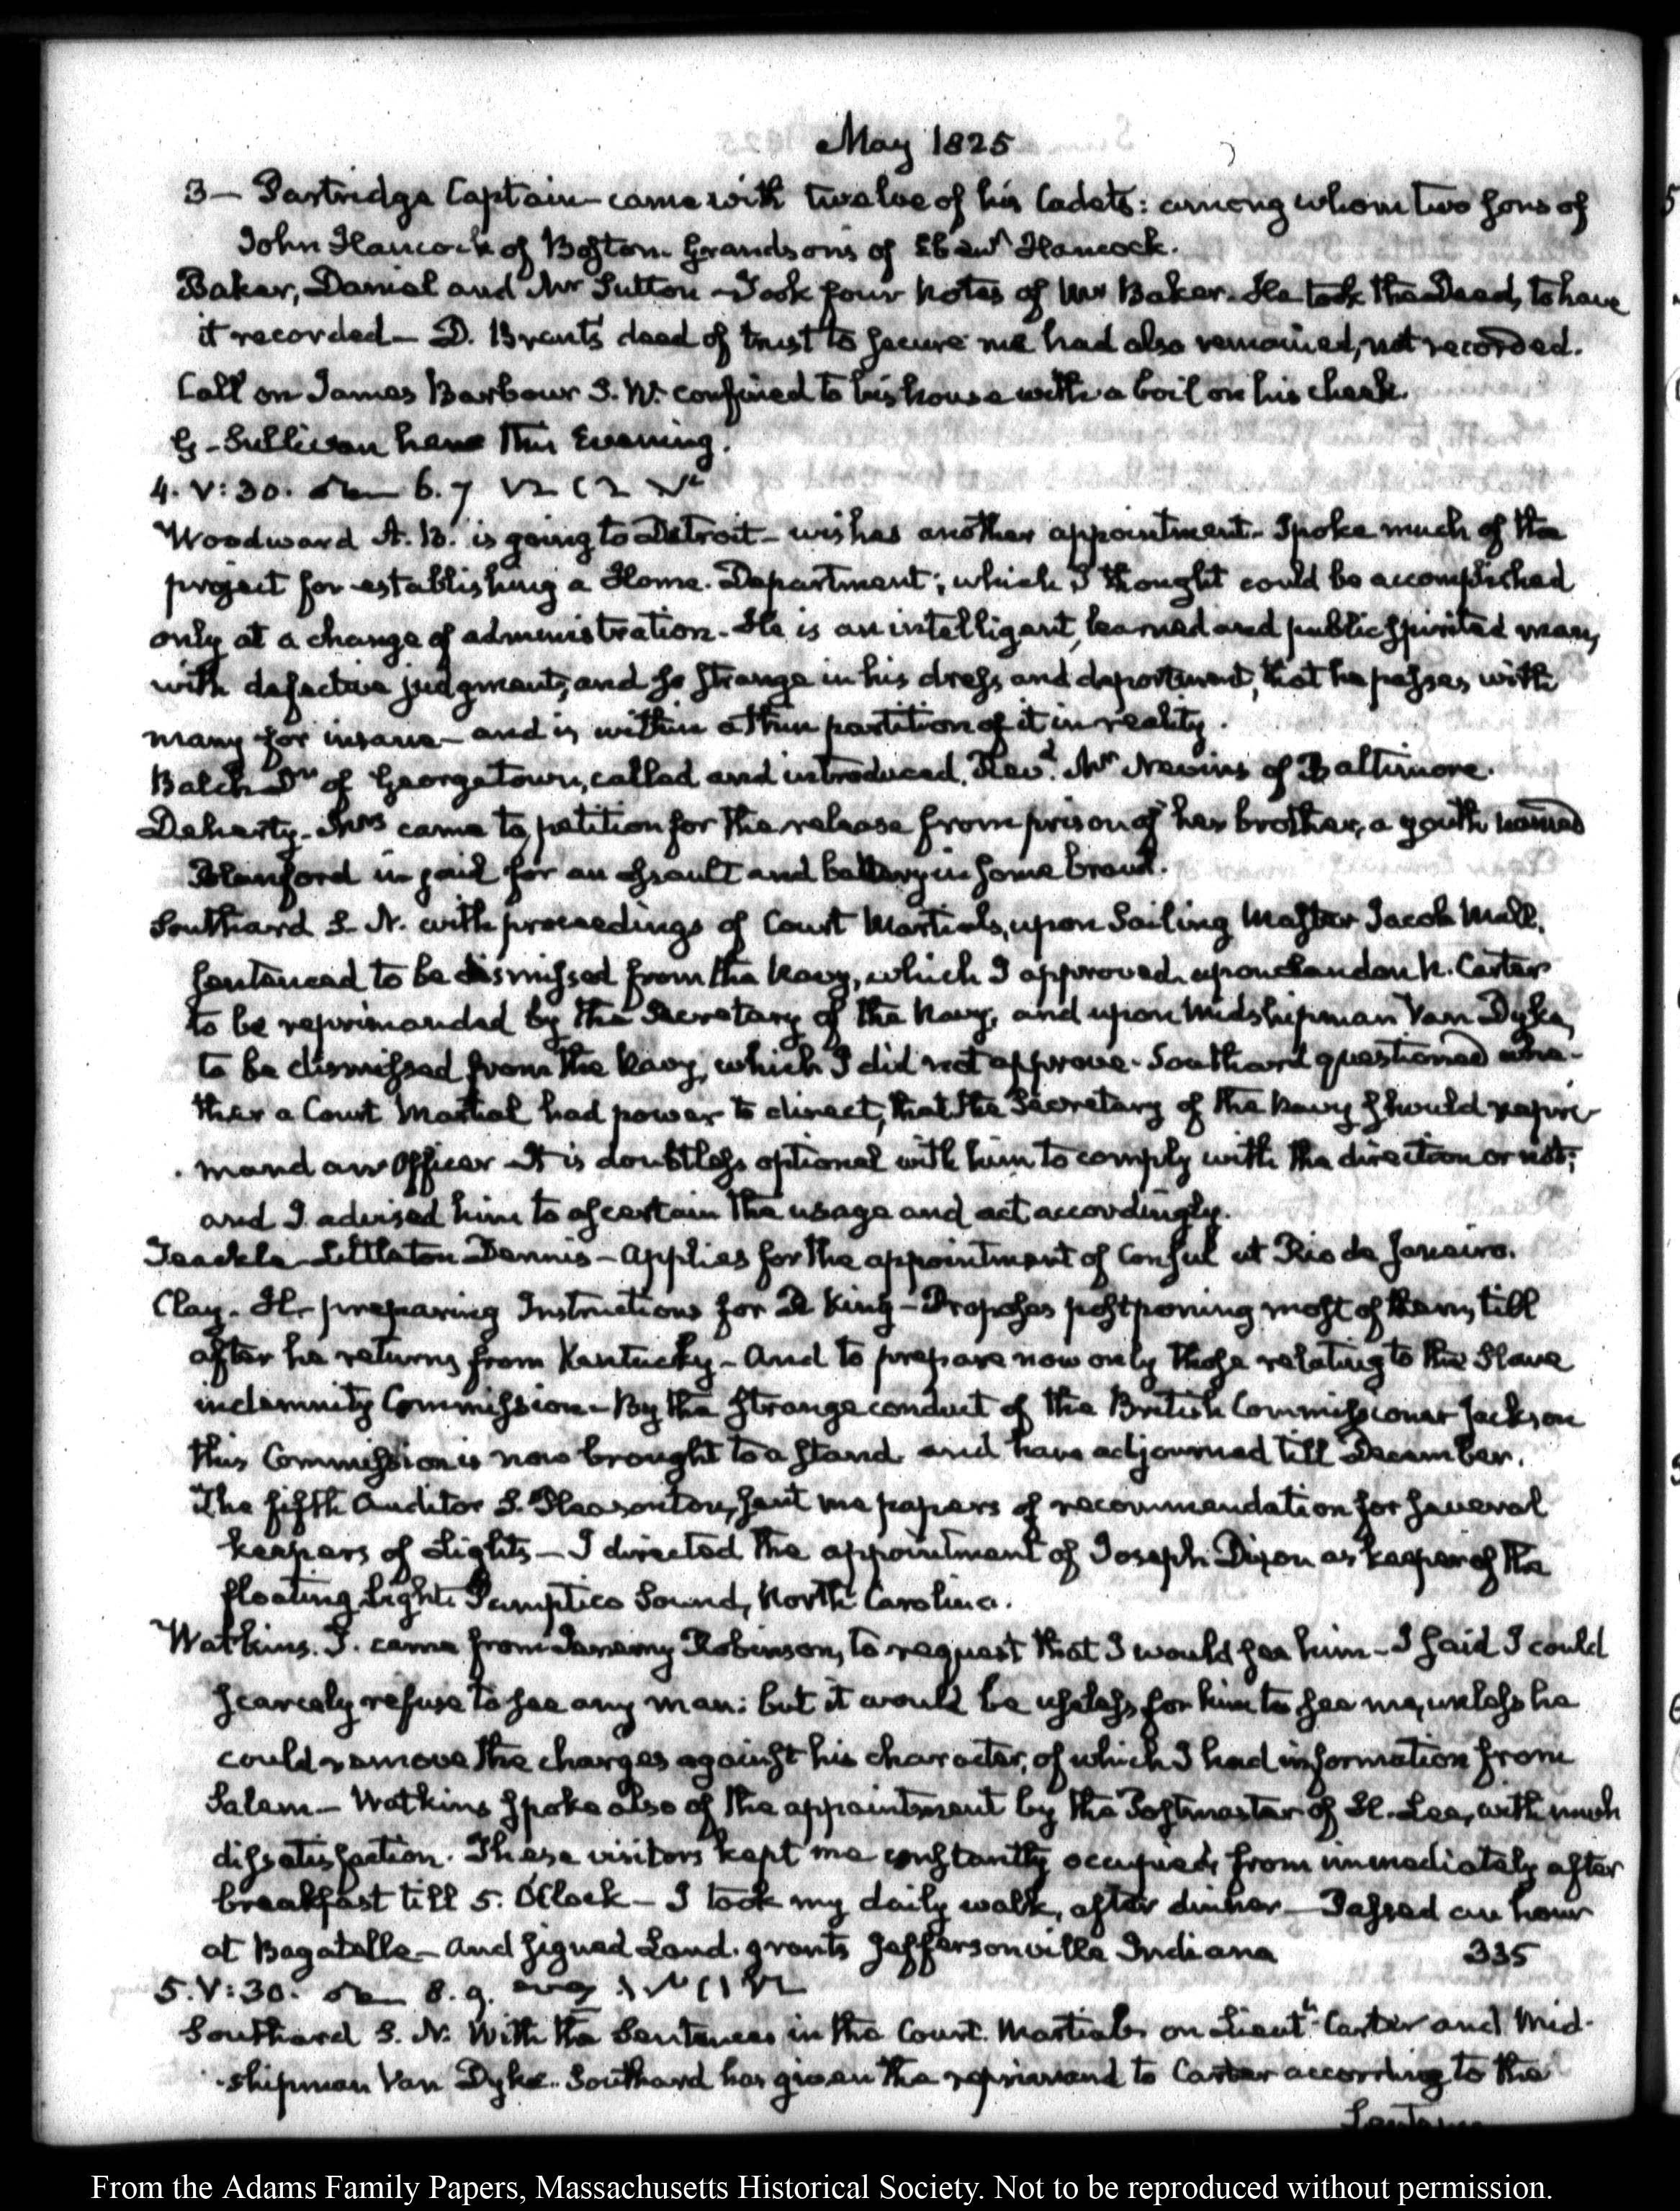 May 1825
3— Partridge Captain—came with twelve of his Cadets: among whom two sons of
John Hancock of Boston. Grandsons of Ebenr Hancock.
Baker, Daniel and Mr Sutton—Took four Notes of Mr Baker. He took the Deed, to have
it recorded—D. Brent's deed of trust to secure me had also remained, not recorded.
Call on James Barbour S. W. confined to his house with a boil on his cheek.
G. Sullivan here this Evening.
4. V:30. 6.7
Woodward A. B. is going to Detroit—wishes another appointment. Spoke much of the
project for establishing a Home. Department; which I thought could be accomplished
only at a change of administration. He is an intelligent, learned and public spirited man,
with defective judgment; and so strange in his dress and deportment, that he passes with
many for insane—and is within a thin partition of it in reality.
Balch Dr of Georgetown, called and introduced Revd. Mr Nevins of Baltimore.
Deherty. Mrs came to petition for the release from prison of her brother, a youth named
Blanford in gaid for an assault and battery in some brawl.
Southard S. N. with proceedings of Court Martials, upon Sailing Master Jacob Mull,
sentenced to be dismissed from the Navy, which I approved. upon Landon N. Carter
to be reprimanded by the Secretary of the Navy, and upon Midshipman Van Dyke,
to be dismissed from the Navy, which I did not approve. Southard questioned whe-
ther a Court Martial had power to direct, that the Secretary of the Navy should repri-
mand an Officer—It is doubtless optional with him to comply with the direction or not;
and I advised him to ascertain the usage and act accordingly.
Teackle Littleton Dennis—Applies for the appointment of Consul at Rio de Janeiro.
Clay. H. preparing Instructions for R King—Proposes postponing most of them, till
after he returns from Kentucky—And to prepare now only those relating to the Slave
indemnity Commission—By the strange conduct of the British Commissioner Jackson
this Commission is now brought to a stand and have adjourned till December.
The fifth Auditor S. Pleasonton, sent me papers of recommendation for several
keepers of Lights—I directed the appointment of Joseph Dixon as keeper of the
floating Light Pamptico Sound, North Carolina.
Watkins. T. came from Jeremy Robinson, to request that I would see him—I said I could
scarcely refuse to see any man: but it would be useless for him to see me, unless he
could remove the charges against his character, of which I had information from
Salem—Watkins spoke also of the appointment by the Postmaster of H. Lee, with much
dissatisfaction. These visitors kept me constantly occupied, from immediately after
breakfast till 5. O'Clock—I took my daily walk, after dinner—Passed an hour
at Bagatelle—And signed Land. grants Jeffersonville Indiana 335
5. V:30. 8.9.
Southard S. N. With the Sentences in the Court Martials on Lieutt. Carter and Mid-
shipman Van Dyke. Southard has given the reprimand to Carter according to the
From the Adams Family Papers, Massachusetts Historical Society. Not to be reproduced without permission.